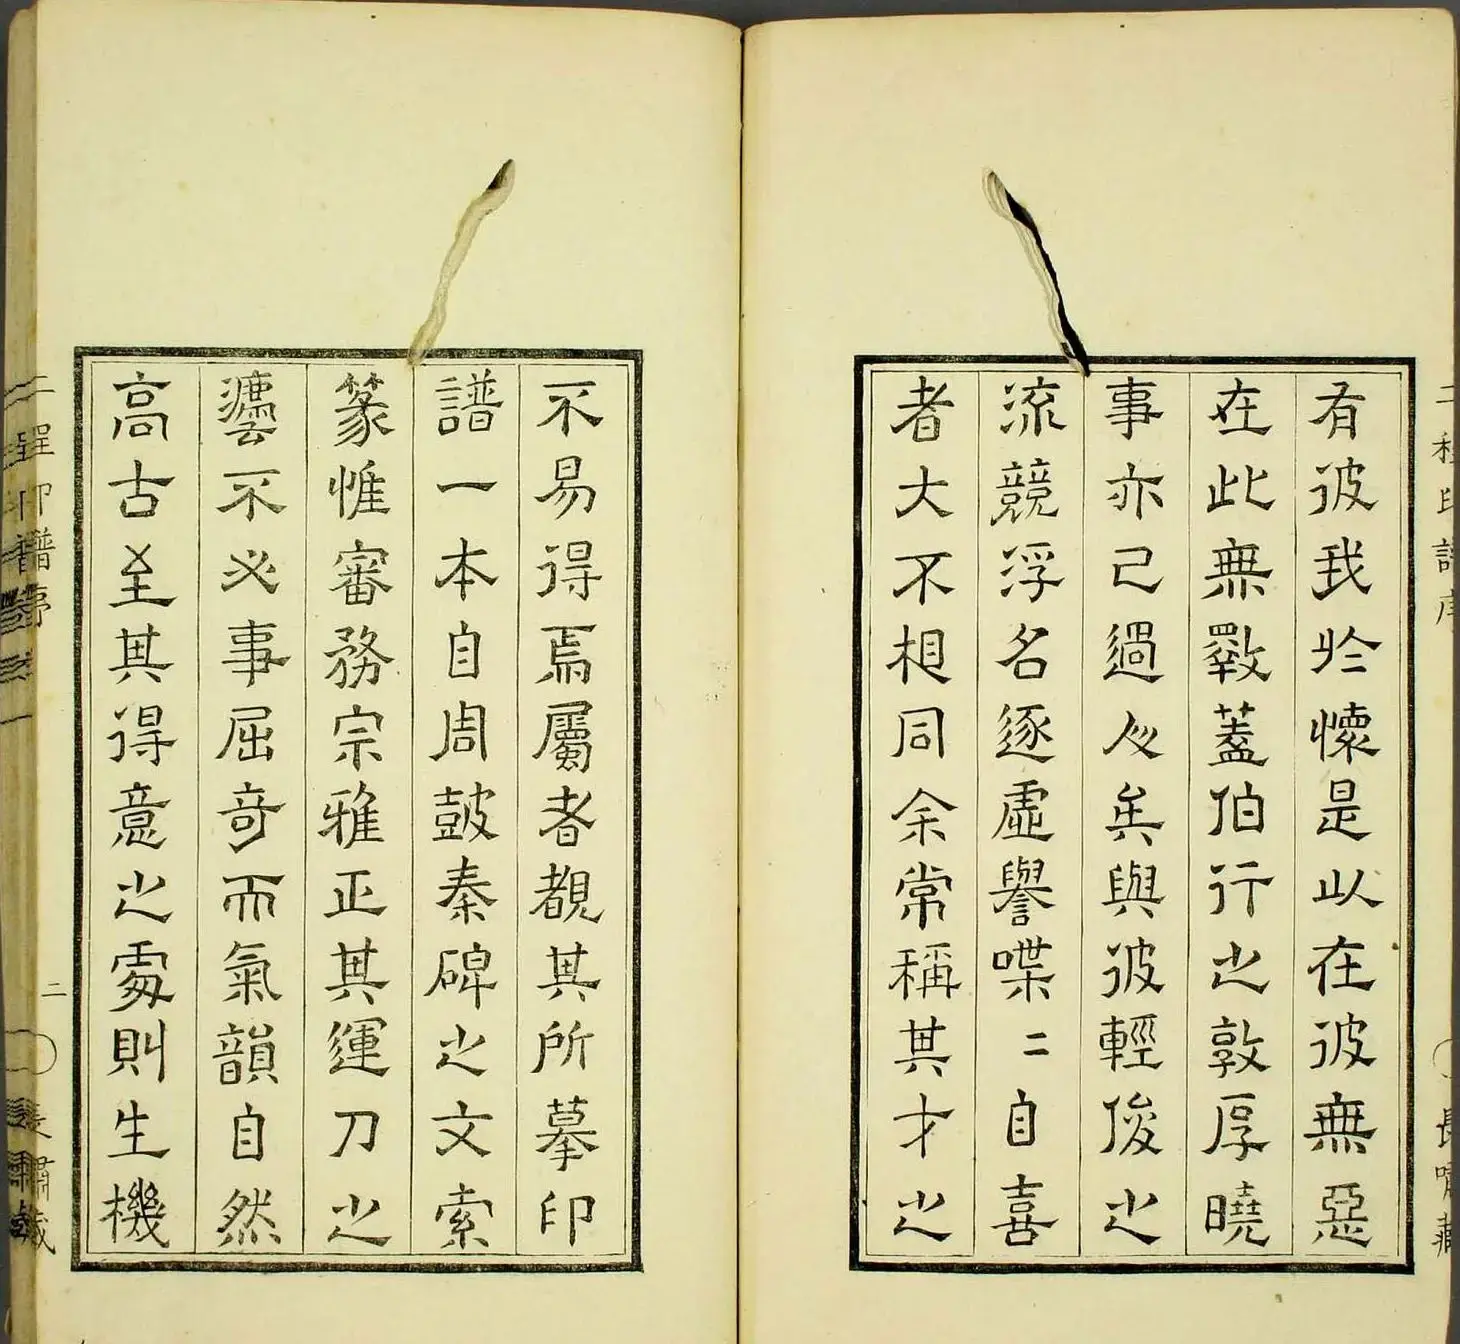 有彼我於懷是以在彼無惡
在此無斁蓋伯行之敦厚曉
事亦已過人矣與彼輕俊之
流競浮名逐虛譽喋二自喜
者大不相同余常稱其才之
不易得焉屬者覩其所摹印
譜一本自周鼓秦碑之文索
篆惟審務宗雅正其運刀之
不必事屈奇而氣韻自然
高古至其得意之處則生機
二程印譜序
二
長嘯藏